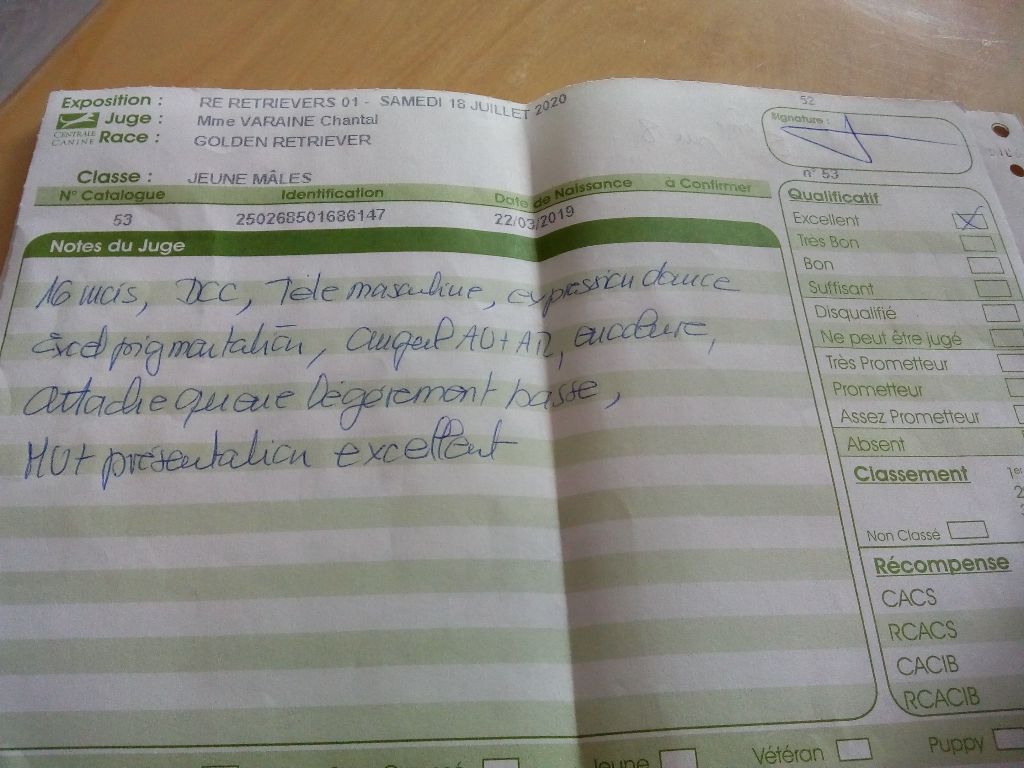 Exposition : RE RETRIEVERS 01 - SAMEDI 18 JUILLET 2020
Juge : Mme VARAINE Chantal
CENTRALE CANINE
Race : GOLDEN RETRIEVER
Classe : JEUNE MÂLES
N° Catalogue Identification Date de Naissance à Confirmer
53 250268501686147 22/03/2019
Notes du Juge
16 mois, DCC, Tete masculine, expression douce
Excel pigmentation, angul AV+AR, encolure,
attache queue légèrement basse,
MVt présentation excellent
52
Signature :
n° 53
Qualificatif
Excellent
Très Bon
Bon
Suffisant
Disqualifié
Ne peut être jugé
Très Prometteur
Prometteur
Assez Prometteur
Absent
Classement 1er
2
Non Classé
Récompense
CACS
RCACS
CACIB
RCACIB
Jeune Vétéran Puppy